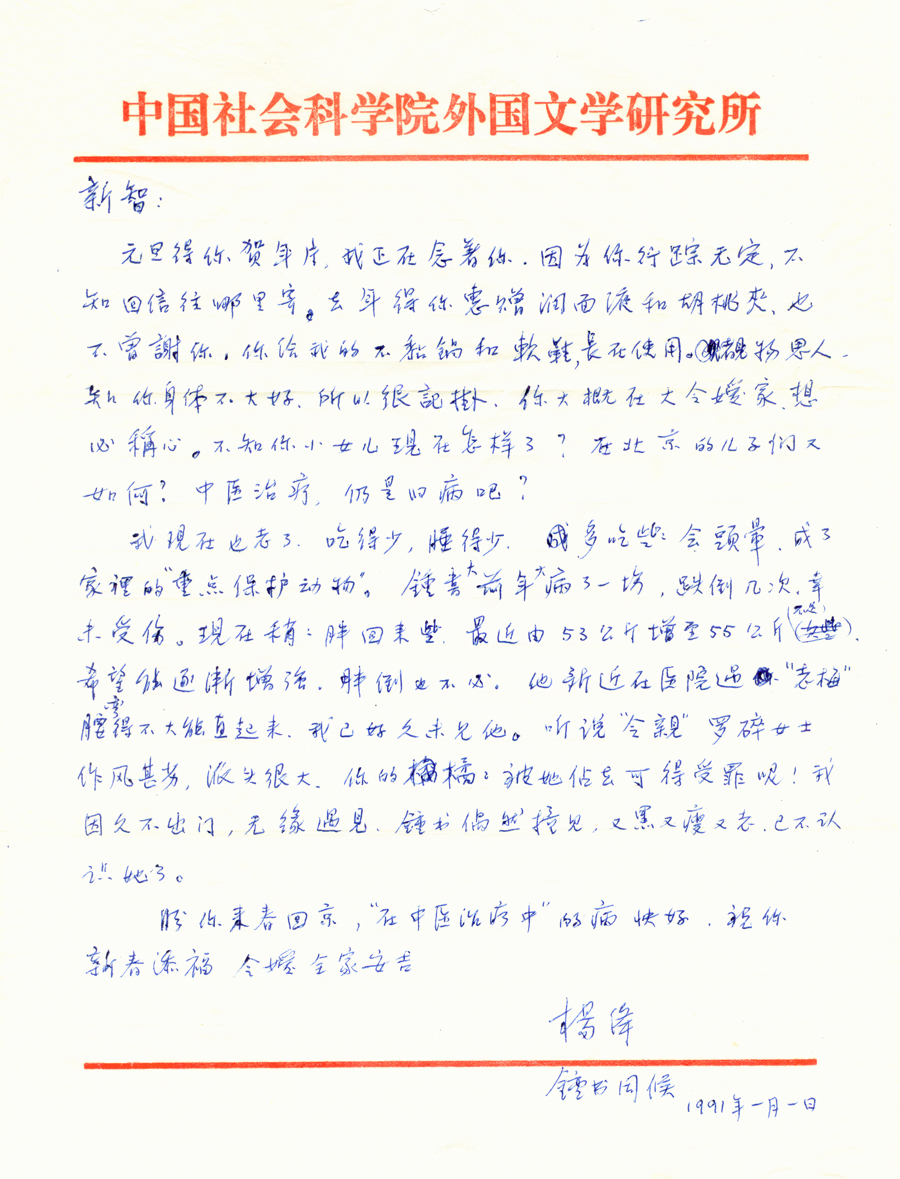 中国社会科学院外国文学研究所
新智：
元旦得你贺年片，我正在念著你．因为你行踪无定，不
知回信往哪里寄。去年得你惠赠润面液和胡桃夾，也
不曾謝你．你给我的不黏鍋和軟鞋，長在使用。睹物思人．
知你身体不大好．所以很記掛．你大概在大令嫒家．想
必稱心。不知你小女儿现在怎样了？在北京的儿子们又
如何？中医治疗，仍是旧病吧？
我现在也老了．吃得少，睡得少．多吃些会頭暈．成了
家裡的“重点保护动物”。鍾書大前年大病了一场，跌倒几次．幸
未受伤。现在稍：胖回来些．最近由53公斤增至55公斤(不足)．
希望能逐漸增強．胖倒也不必。他新近在医院遇“老梅”
腰弯得不大能直起来．我已好久未见他。听说“令親”罗碎女士
作风甚劣，派头很大．你的橘：被她佔去可得受罪呢！我
因久不出门，无缘遇见．鍾书偶然撞见，又黑又瘦又老．已不认
识她了。
盼你来春回京，“在中医治疗中”的病快好．祝你
新春添福 令嫒全家安吉
楊绛
鍾书同候
1991年一月一日